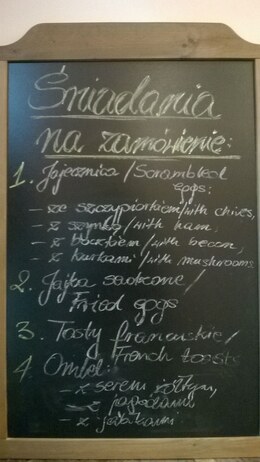 Śniadania
na zamówienie:
1. Jajecznica / Scrambled
eggs:
– ze szczypiorkiem / with chives,
– z szynką / with ham,
– z boczkiem / with becon,
– z kurkami / with mushrooms
2. Jajka sadzone /
Fried eggs
3. Tosty francuskie /
French toasts
4. Omlet:
– z serem żółtym,
– z jagodami
– z jabłkami